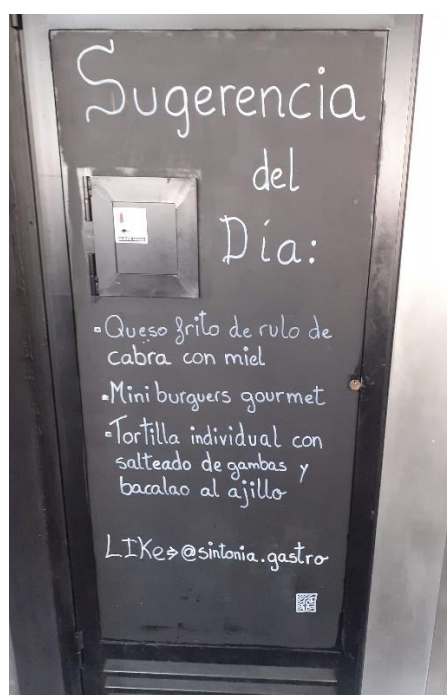 Sugerencia
del
Día:
Queso frito de rulo de
cabra con miel
Mini burguers gourmet
Tortilla individual con
salteado de gambas y
bacalao al ajillo
LIKe → @sintonia.gastro